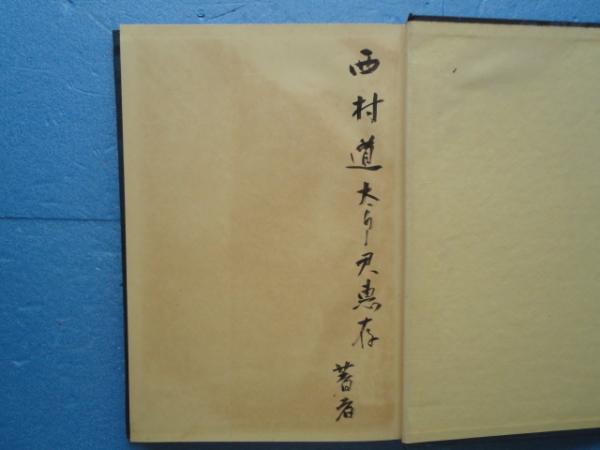 西村道太郎君惠存
著者